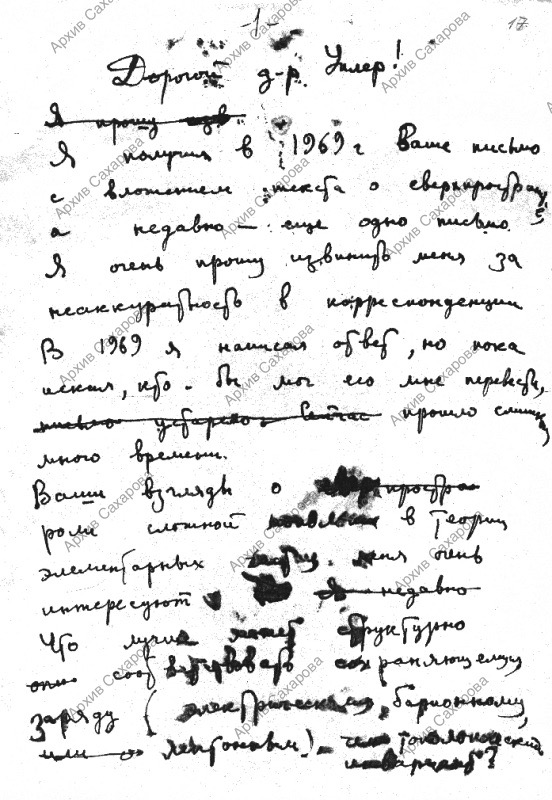 -1-
17
Дорогой д-р. Уилер!
Я прошу изв
Я получил в 1969 г Ваше письмо
с вложением текста о сверхпростран
а недавно — еще одно письмо.
Я очень прошу извинить меня за
неаккуратность в корреспонденции
В 1969 я написал ответ, но пока
искал, кто-бы мог его мне перевести,
письмо устарело. Сейчас прошло слишком
много времени.
Ваши взгляды о простра
роли сложной в теории
элементарных частиц меня очень
интересуют недавно
Что лучше может структурно
соответствовать сохраняющемуся
заряду (электрическому, барионному,
или лептонным) — топологический
инвариант?
Архив Сахарова